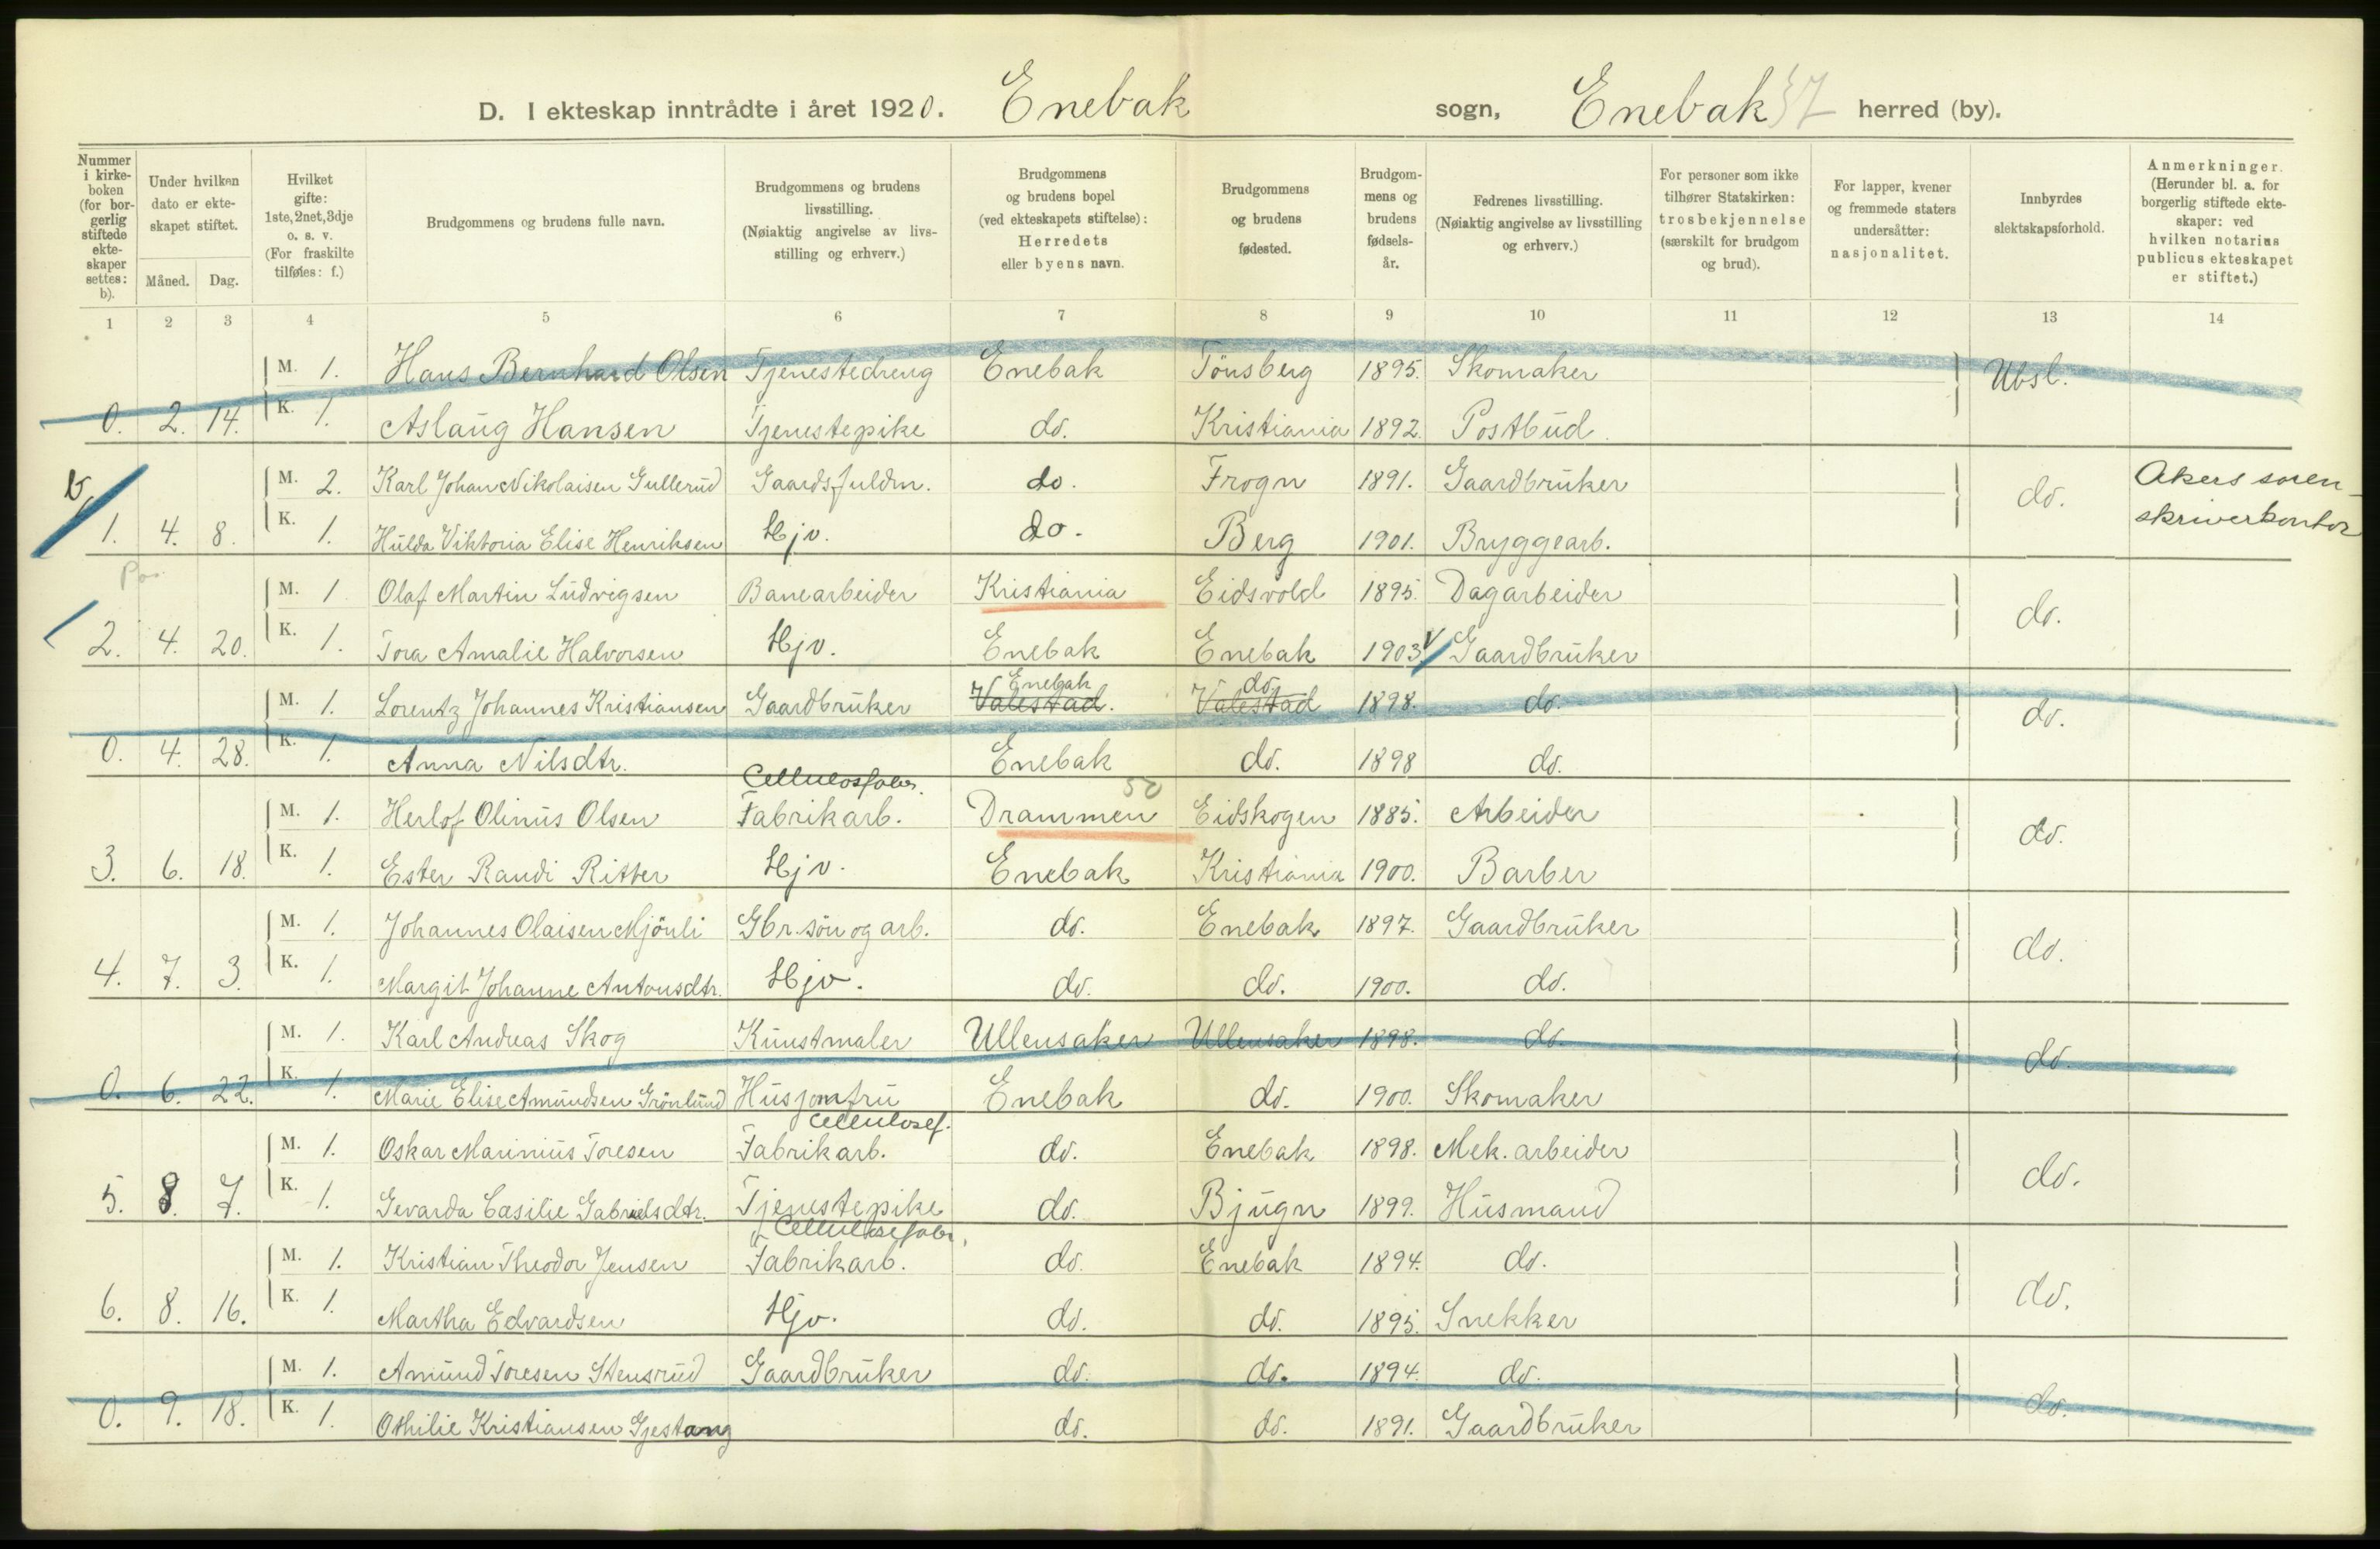 D. I ekteskap inntrådte i året 1920. Enebak sogn, Enebak herred (by).
Nummer i kirkeboken (for borgerlig stiftede ekteskaper settes: b).
Under hvilken dato er ekteskapet stiftet.
Måned. Dag.
Hvilket gifte: 1ste, 2net, 3dje o. s. v. (For fraskilte tilføies: f.)
Brudgommens og brudens fulle navn.
Brudgommens og brudens livsstilling. (Nøiaktig angivelse av livsstilling og erhverv.)
Brudgommens og brudens bopel (ved ekteskapets stiftelse): Herredets eller byens navn.
Brudgommens og brudens fødested.
Brudgommens og brudens fødselsår.
Fedrenes livsstilling. (Nøiaktig angivelse av livsstilling og erhverv.)
For personer som ikke tilhører Statskirken: trosbekjennelse (særskilt for brudgom og brud).
For lapper, kvener og fremmede staters undersåtter: nasjonalitet.
Innbyrdes slektskapsforhold.
Anmerkninger. (Herunder bl. a. for borgerlig stiftede ekteskaper: ved hvilken notarius publicus ekteskapet er stiftet.)
1 2 3 4 5 6 7 8 9 10 11 12 13 14
M. 1. Hans Bernhard Olsen Tjenestedreng Enebak Tönsberg 1895. Skomaker Ubsl.
0. 2. 14. K. 1. Aslaug Hansen Tjenestepike do. Kristiania 1892. Postbud.
M. 2. Karl Johan Nikolaisen Gullerud Gaardsfuldm. do. Frogn 1891. Gaardbruker do. Akers soren-
1. 4. 8. K. 1. Hulda Viktoria Elise Henriksen Hjv. do. Berg 1901. Bryggearb. skriverkontor
M. 1. Olaf Martin Ludvigsen Banearbeider Kristiania Eidsvold 1895. Dagarbeider do.
2. 4. 20. K. 1. Tora Amalie Halvorsen Hjv. Enebak Enebak 1903 Gaardbruker
Enebak do.
M. 1. Lorentz Johannes Kristiansen Gaardbruker Valestad. Valestad 1898. do. do.
0. 4. 28. K. 1. Anna Nilsdtr. Enebak do. 1898 do.
Cellulosfabr. 50
M. 1. Herlof Olinus Olsen Fabrikarb. Drammen Eidskogen 1885. Arbeider do.
3. 6. 18. K. 1. Ester Randi Ritter Hjv. Enebak Kristiania 1900. Barber
M. 1. Johannes Olaisen Mjönli Gbr. sön og arb. do. Enebak 1897. Gaardbruker do.
4. 7. 3. K. 1. Margit Johanne Antonsdtr. Hjv. do. do. 1900. do.
M. 1. Karl Andreas Skog Kunstmaler Ullensaker Ullensaker 1898. do. do.
0. 6. 22. K. 1. Marie Elise Amundsen Grönlund Husjomfru Enebak do. 1900. Skomaker
Cellulosef.
M. 1. Oskar Marinius Toresen Fabrikarb. do. Enebak 1898. Mek. arbeider do.
5. 8. 7. K. 1. Gevarda Cæsilie Gabrielsdtr. Tjenestepike do. Bjugn 1899. Husmand
Cellulosefabr.
M. 1. Kristian Theodor Jensen Fabrikarb. do. Enebak 1894. do. do.
6. 8. 16. K. 1. Martha Edvardsen Hjv. do. do. 1895. Snekker
M. 1. Amund Toresen Stensrud Gaardbruker do. do. 1894. do. do.
0. 9. 18. K. 1. Othilie Kristiansen Gjestang do. do. 1891. Gaardbruker